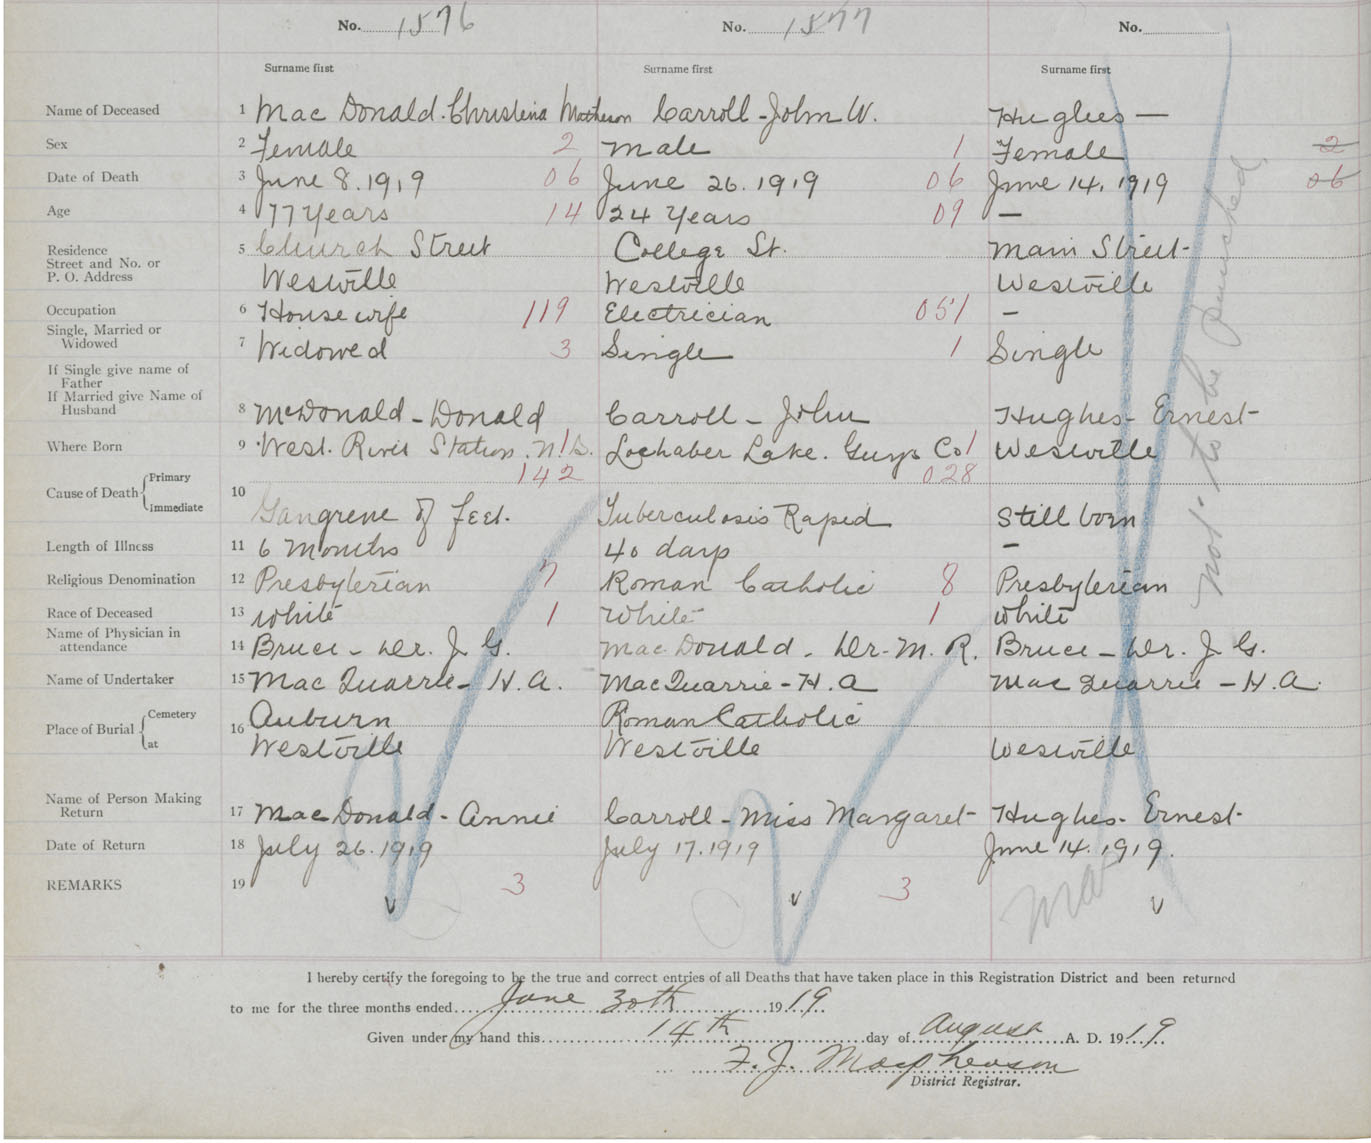 No. 1576 No. 1577 No.
Surname first Surname first Surname first
Name of Deceased 1 Mac Donald. Christina Matheson Carroll - John W. Hughes —
Sex 2 Female 2 Male 1 Female 2
Date of Death 3 June 8. 1919 06 June 26. 1919 06 June 14. 1919 06
Age 4 77 Years 14 24 Years 09 —
Residence
Street and No. or
P. O. Address
5 Church Street College St. Main Street
Westville Westville Westville
Occupation 6 House wife 119 Electrician 051 -
Single, Married or
Widowed
7 Widowed 3 Single 1 Single
If Single give name of
Father
If Married give Name of
Husband
8 McDonald - Donald Carroll - John Hughes - Ernest
Where Born 9 West. River Station. N.S. 1 Lochaber Lake. Guys Co 1 Westville
142 028
Cause of Death Primary
Immediate
10 Gangrene of feet. Tuberculosis Rapid Still born
Length of Illness 11 6 Months 40 days -
Religious Denomination 12 Presbyterian 7 Roman Catholic 8 Presbyterian
Race of Deceased 13 White 1 White 1 White
Name of Physician in
attendance
14 Bruce - Dr. J. G. MacDonald. Dr. M. R. Bruce - Dr. J. G.
Name of Undertaker 15 Mac Quarrie - H. A. MacQuarrie - H. A Mac Quarrie - H. A.
Place of Burial Cemetery
at
16 Auburn Roman Catholic
Westville Westville Westville
Name of Person Making
Return
17 MacDonald - Annie Carroll - Miss Margaret Hughes - Ernest
Date of Return 18 July 26. 1919 July 17. 1919 June 14. 1919.
REMARKS 19 3 3
not to be punched
I hereby certify the foregoing to be the true and correct entries of all Deaths that have taken place in this Registration District and been returned
to me for the three months ended June 30th 1919
Given under my hand this 14th day of August A. D. 1919
F. J. Macpherson
District Registrar.